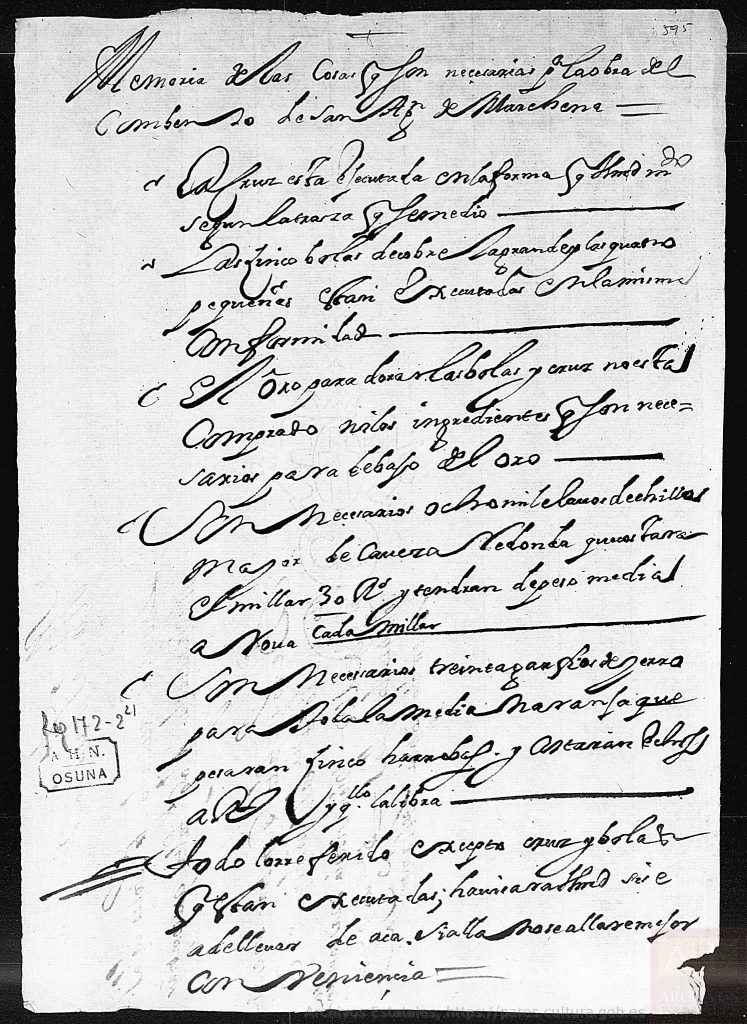 595
Memoria de las Cosas q son necesarias pª la obra del
Combento de san Agn de Marchena
La Cruz esta executada en la forma q Vmd mdo
segun la traza q se me dio
Las sinco bolas de cobre la grande y las quatro
pequeñas estan executadas en la misma
Conformidad
El Oro para dorar las bolas y cruz no esta
Comprado ni los ingredientes q son nece=
sarios para debajo del oro
Son Necesarios ocho mil clauos de chillos
mayor de Caueza Redonda que costara
el millar 30 Rs y tendran de peso media
aRoua Cada Millar
Son Necesarios treinta garfios de yerro
para toda la Media Naranja que
pesaran sinco harrobas y estarian hechos
a Rl y qllo la libra
todo lo rreferido excepto cruz y bolas
q estan executadas; hauisara Vmd si se
a de lleuar de aca. si alla no se alla remejor
Conveniençia
Leg 172-2
A. H. N.
OSUNA